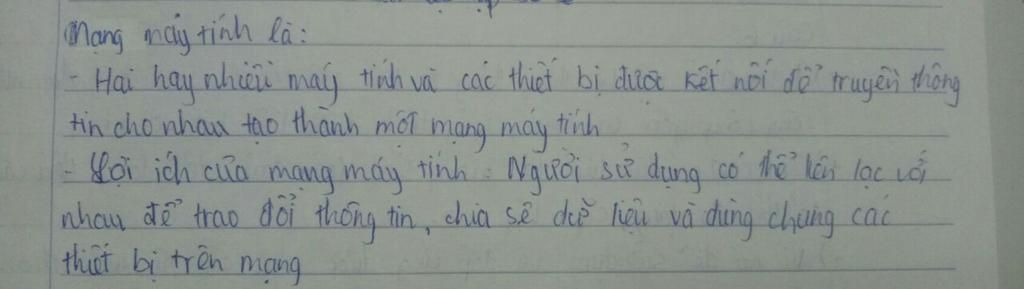 Mạng máy tính là:
- Hai hay nhiều máy tính và các thiết bị được kết nối để truyền thông
tin cho nhau tạo thành một mạng máy tính
- Lợi ích của mạng máy tính: Người sử dụng có thể liên lạc với
nhau để trao đổi thông tin, chia sẽ dữ liệu và dùng chung các
thiết bị trên mạng